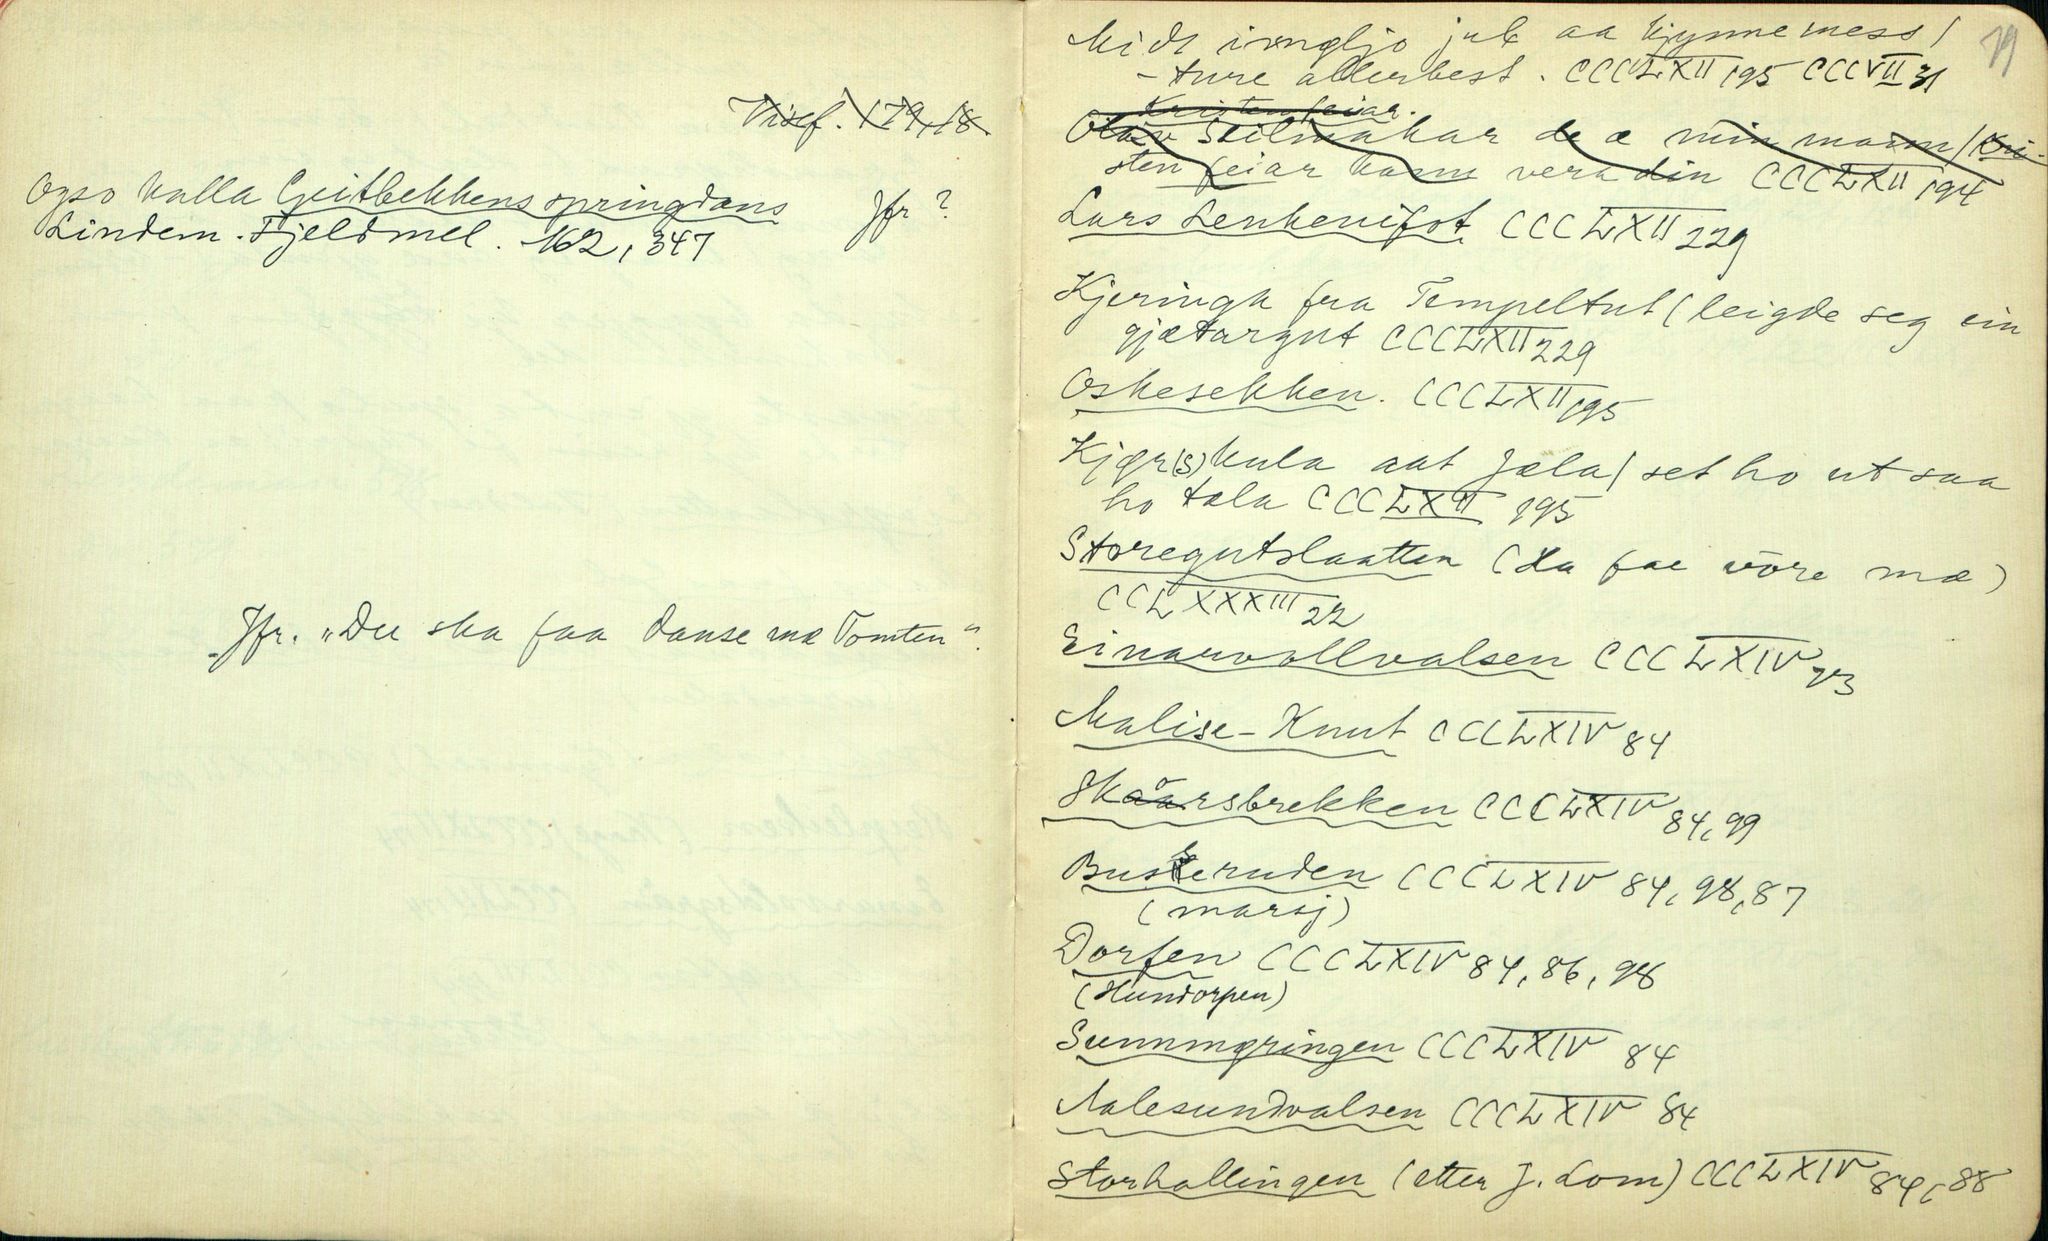 Visef. 179,18.
Ogso kalla Geitbekkens springdans Jfr ?
Lindem. Fjeldmel. 162, 347
Jfr. "Du ska faa danse mæ Tomten".
79
Midt imyljo jul aa kjynnemess /
- ture allerbest. CCCLXII 195 CCCVII 31
Kristen feiar.
Olav Seilmakar de æ min mann / Kri-
sten feiar kann vera din CCCLXII 194
Lars Lenkenifot. CCCLXII 229
Kjeringa fra Tempeltut (leigde seg ein
gjætargut CCCLXII 229
Oskesekken. CCCLXII 195
Kjør(s) kula aat Jæla / set ho ut saa
ho tæla CCCLXII 195
Storegutslaatten (Du fae vöre mæ)
CCLXXXIII 22
Einarvollvalsen CCCLXIV 73
Malise-Knut CCCLXIV 84
Skårsbrekken CCCLXIV 84, 99
Buskeruden CCCLXIV 84, 98, 87
(marsj)
Dorfen CCCLXIV 84, 86, 98
(Hundorpen)
Sunnmøringen CCCLXIV 84
Aalesundvalsen CCCLXIV 84
Storhallingen (etter J. Lom) CCCLXIV 84, 88